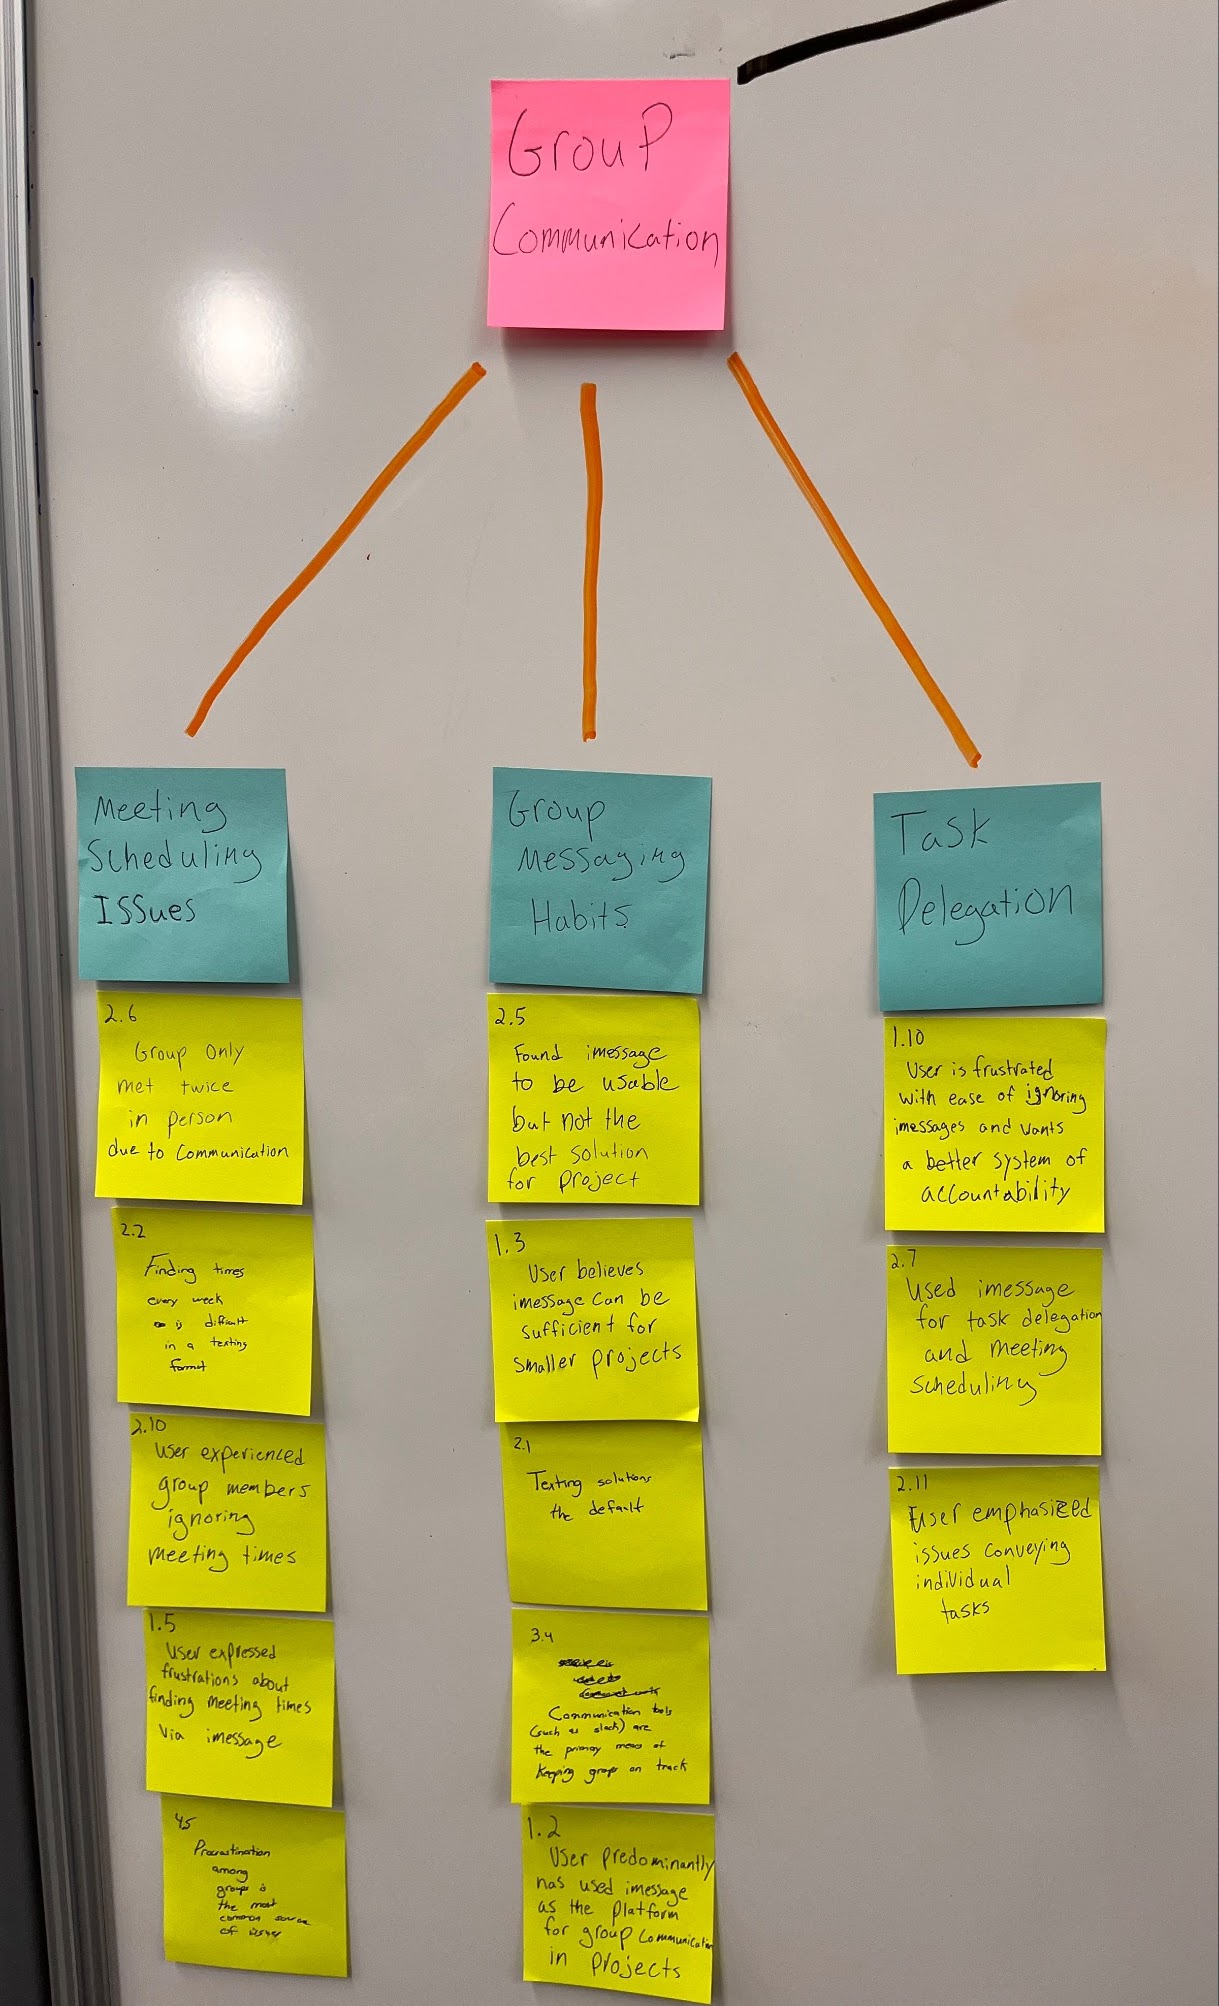 Group
Communication
Meeting
Scheduling
Issues
2.6
Group Only
met twice
in person
due to Communication
2.2
Finding times
every week
is difficult
in a texting
format
2.10
User experienced
group members
ignoring
meeting times
1.5
User expressed
frustrations about
finding meeting times
via imessage
4.5
Procrastination
among
groups is
the most
common source
of issues
Group
Messaging
Habits
2.5
Found imessage
to be usable
but not the
best solution
for project
1.3
User believes
imessage can be
sufficient for
smaller projects
2.1
Texting solutions
the default
3.4
Communication tools
(such as slack) are
the primary means of
keeping groups on track
1.2
User predominantly
has used imessage
as the platform
for group communication
in projects
Task
Delegation
1.10
User is frustrated
with ease of ignoring
imessages and wants
a better system of
accountability
2.7
Used imessage
for task delegation
and meeting
scheduling
2.11
User emphasized
issues conveying
individual
tasks